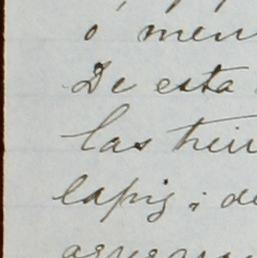 ó men
De esta
las trein
lapiz i de